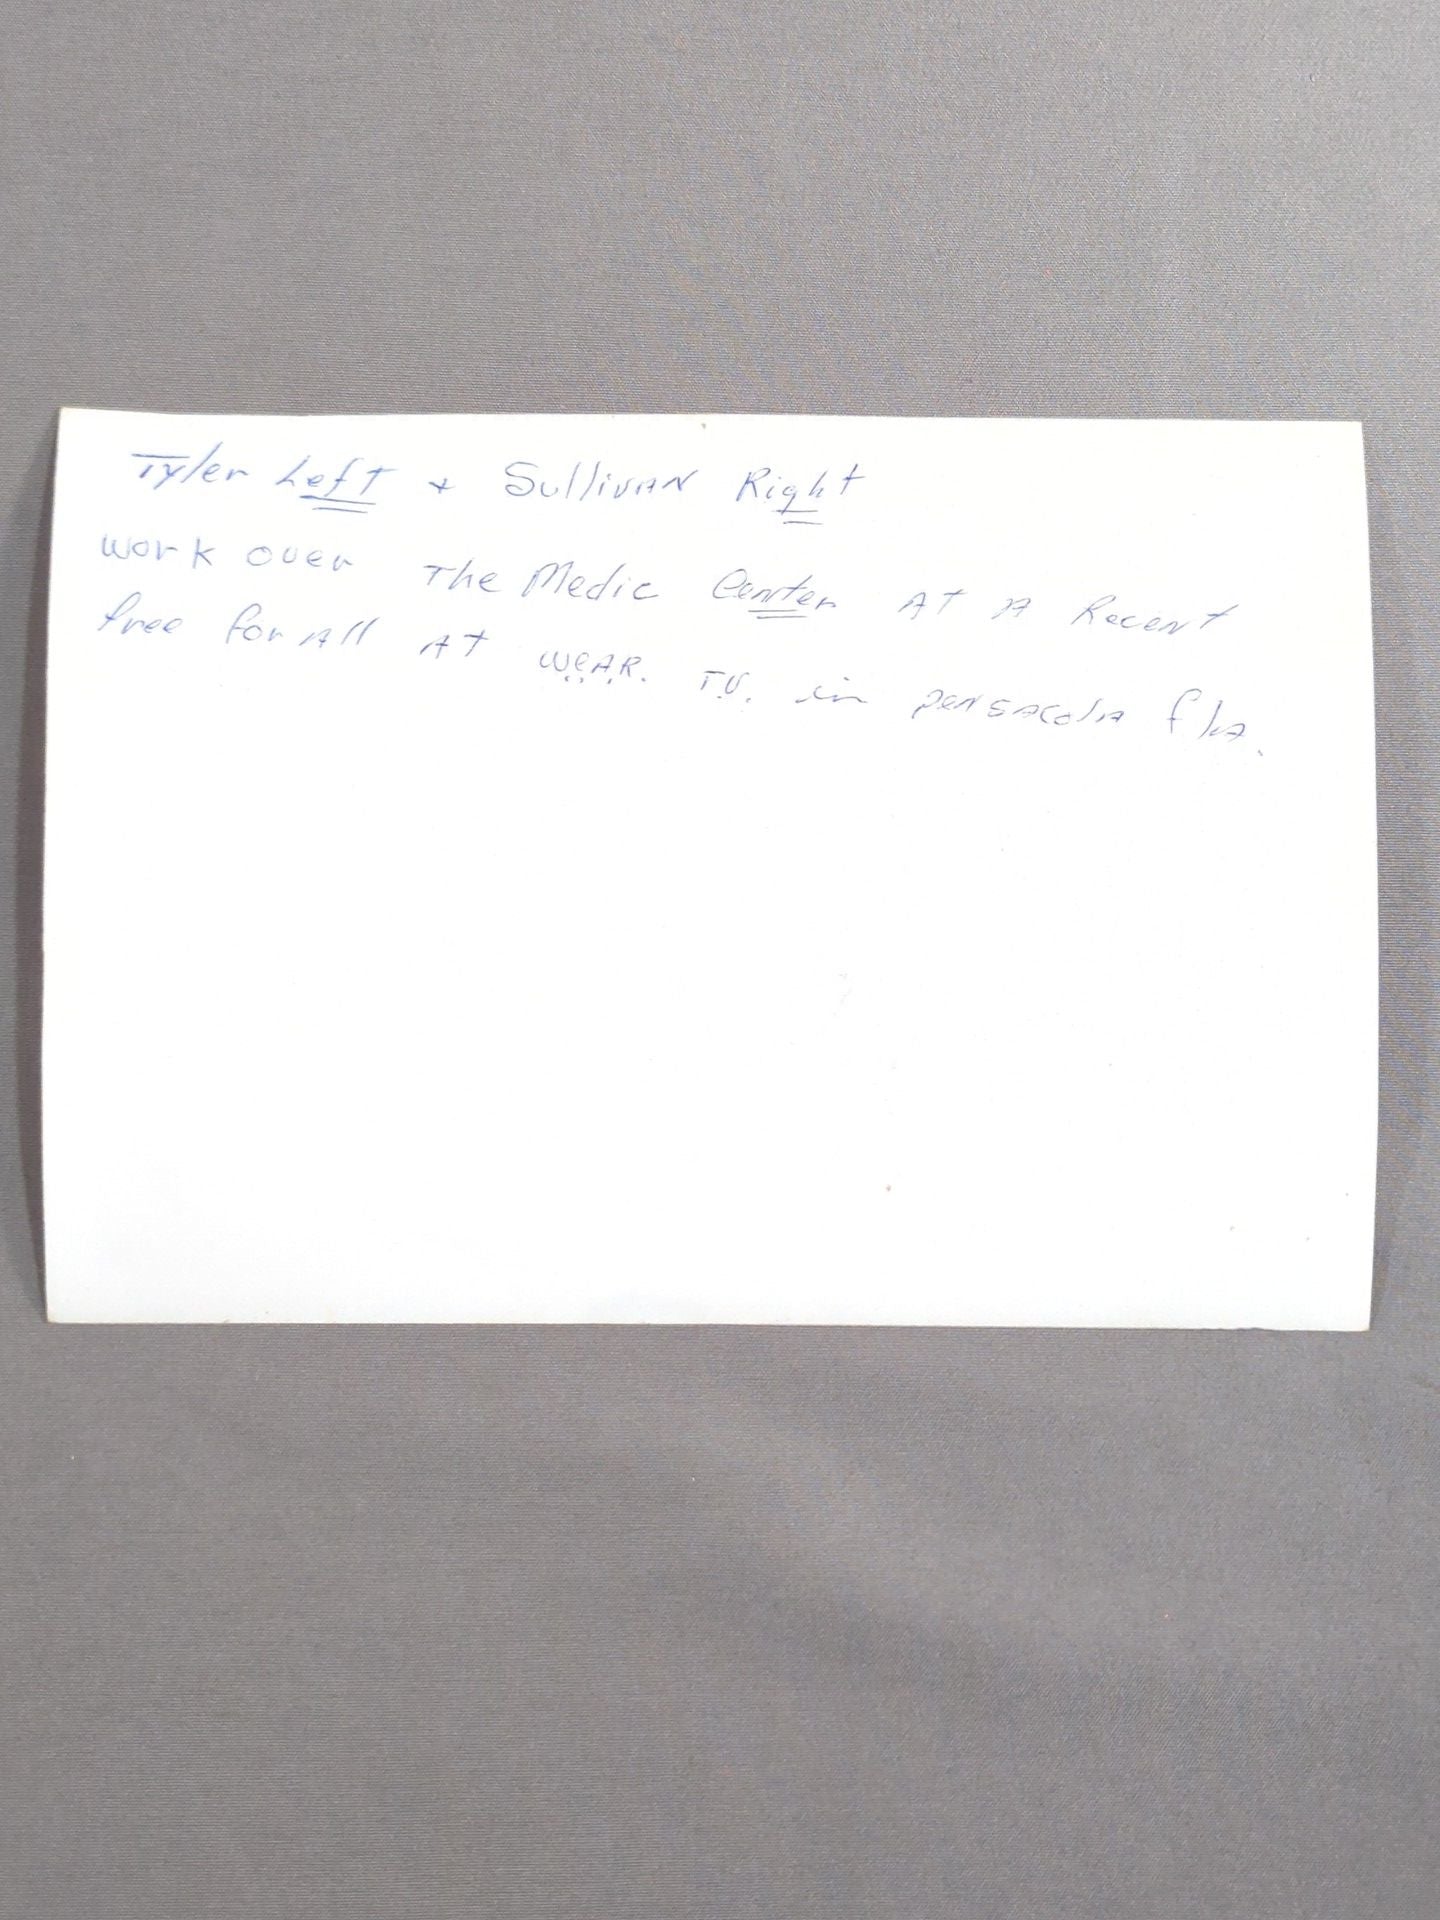 Tyler Left + Sullivan Right
work over The Medic Center At A Recent
free for All At W.E.A.R. T.V. in pensacola fla.